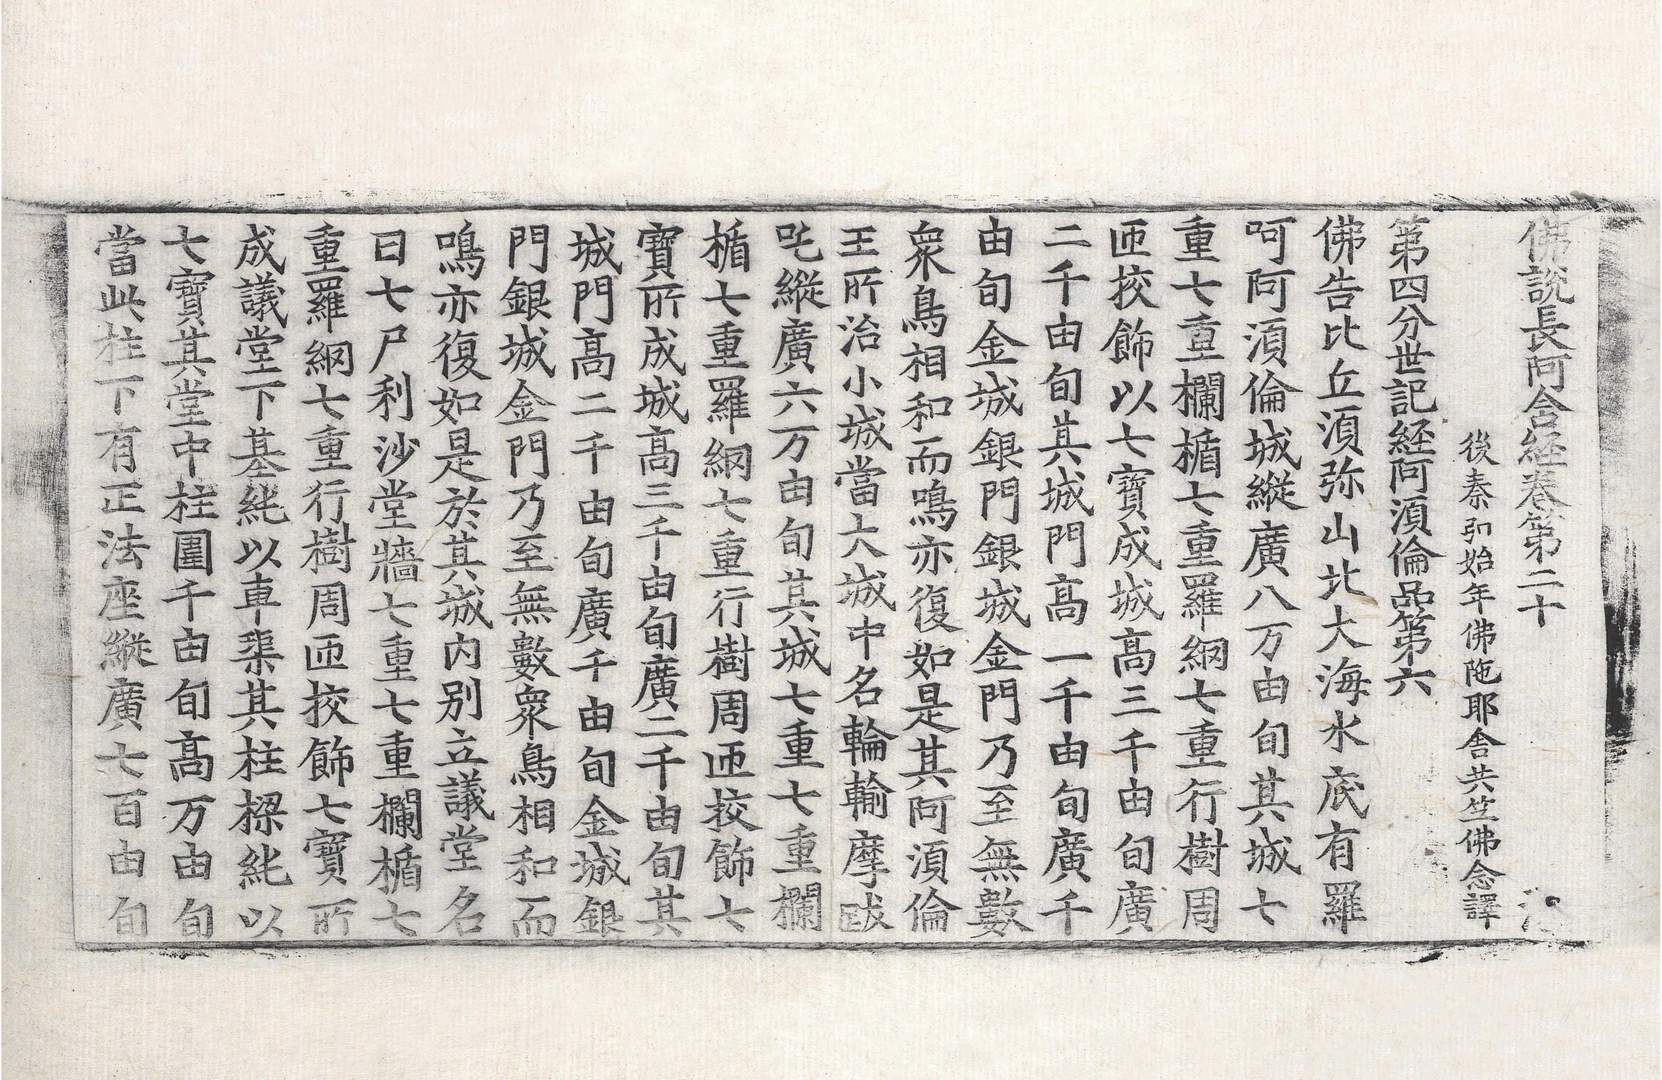 佛說長阿含經卷第二十
後秦弘始年佛陁耶舎共竺佛念譯
第四分世記經阿湏倫品第六
佛告比丘湏弥山北大海水底有羅
呵阿湏倫城縱廣八万由旬其城七
重七重欄楯七重羅網七重行樹周
匝挍飾以七寶成城高三千由旬廣
二千由旬其城門高一千由旬廣千
由旬金城銀門銀城金門乃至無數
衆鳥相和而鳴亦復如是其阿湏倫
王所治小城當大城中名輪輸摩跋
吒縱廣六万由旬其城七重七重欄
楯七重羅網七重行樹周匝挍飾七
寶所成城高三千由旬廣二千由旬其
城門高二千由旬廣千由旬金城銀
門銀城金門乃至無數衆鳥相和而
鳴亦復如是於其城內別立議堂名
曰七尸利沙堂牆七重七重欄楯七
重羅網七重行樹周匝挍飾七寶所
成議堂下基純以車璖其柱樑純以
七寶其堂中柱圍千由旬高万由旬
當此柱下有正法座縱廣七百由旬